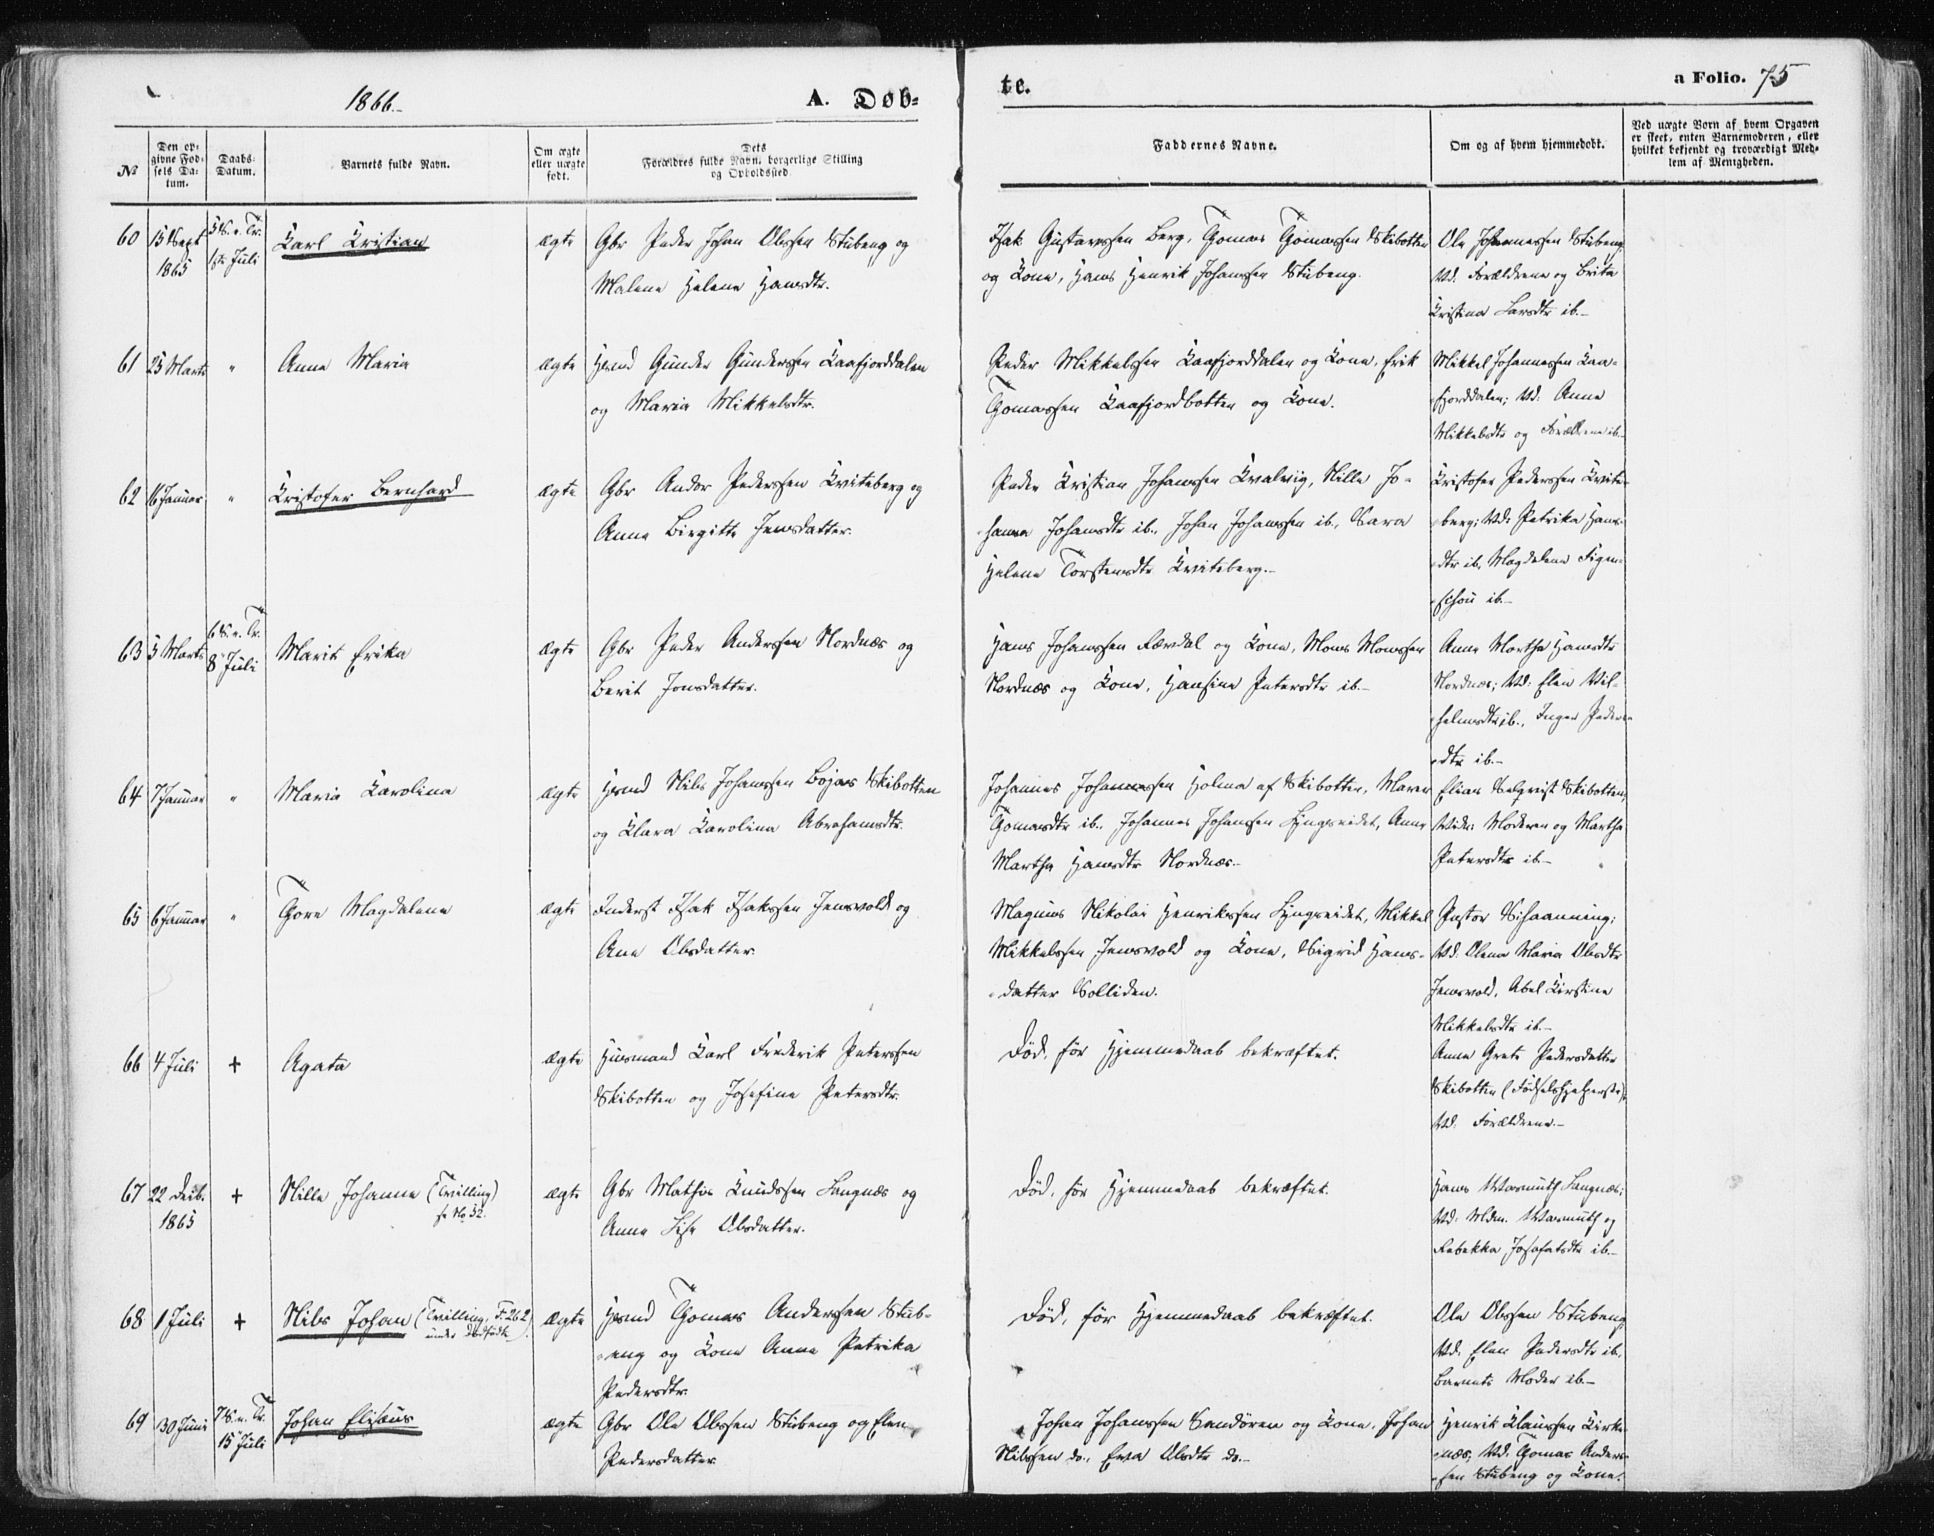 1866.
A. Døb-
te.
a Folio. 75
No
Den opgivne Fødsels Datum.
Daabs-Datum.
Barnets fulde Navn.
Om ægte eller uægte født.
Dets Forældres fulde Navn, borgerlige Stilling og Opholdssted.
Faddernes Navne.
Om og af hvem hjemmedøbt.
Ved uægte Børn af hvem Opgaven er skeet, enten Barnemoderen, eller hvilket bekjendt og troværdigt Medlem af Menigheden.
60 15 Sept 1865 5 S. e. Tr. 1ste Juli Karl Kristian ægte
Gbr Peder Johan Olssen Stubeng og
Malene Helene Hansdtr.
Isak Gustavssen Berg, Tomas Tomassen Skibotten
og Kone, Hans Henrik Johanssen Stubeng.
Ole Johannessen Stubeng
Vd. Forældrene og Brita
Kristina Larsdtr ib.-
61 25 Marts " Anne Maria ægte
Hsmd Gunder Gunderssen Kaafjorddalen
og Maria Mikkelsdtr.
Peder Mikkelssen Kaafjorddalen og Kone, Erik
Tomassen Kaafjordbotten og Kone.
Mikkel Johannessen Kaa-
fjorddalen; Vd. Anne
Mikkelsdtr og Forældrene ib.-
62 16 Januar " Kristofer Bernhard ægte
Gbr Andor Pederssen Kviteberg og
Anne Birgitte Jensdatter.
Peder Kristian Johanssen Kvalvig, Nille Jo-
hanna Johansdtr ib., Johan Johanssen ib., Sara
Helene Torstensdtr Kviteberg.-
Kristofer Pederssen Kvite-
berg; Vd: Petrika Hans-
dtr ib, Magdalena Figen-
schou ib.-
63 5 Marts 6 S. e. Tr. 8 Juli Marit Erika ægte
Gbr Peder Anderssen Nordnæs og
Berit Jonsdatter.
Hans Johanssen Rævdal og Kone, Mons Monssen
Nordnæs og Kone, Hansine Petersdtr ib.-
Anne Martha Hansdtr
Nordnæs; Vd: Elen Vil-
helmsdtr ib., Inger Peders-
dtr ib.-
64 7 Januar " Maria Karolina ægte
Hsmd Nils Johanssen Bojas Skibotten
og Klara Karolina Abrahamsdtr.
Johannes Johannessen Holma af Skibotten, Maren
Tomasdtr ib., Johannes Johanssen Lyngseidet, Anne
Martha Hansdtr Nordnæs.-
Elias Selqvist Skibotten,
Vidn: Moderen og Martha
Petersdtr ib.-
65 6 Januar " Tore Magdalene ægte
Inderst Isak Isakssen Jensvold og
Ane Olsdatter.
Magnus Nikolai Henrikssen Lyngseidet, Mikkel
Mikkelssen Jensvold og Kone, Sigrid Hans-
datter Solliden.
Pastor Schaanning;
Vd. Olena Maria Olsdtr
Jensvold, Abel Kirstine
Mikkelsdtr ib.-
66 4 Juli + Agata ægte
Husmand Karl Frederik Peterssen
Skibotten og Josefine Petersdtr.
Død, før Hjemmedaab bekræftet.
Anne Grete Pedersdatter
Skibotten (Fødselshjelperske),
Vd. Forældrene.-
67 22 Decbr. 1865 + Nille Johanne (Tvilling) se No 52. ægte
Gbr Mathis Knudssen Langnæs og
Anne Lise Olsdatter.
Død, før Hjemmedaab bekræftet.
Hans Warmuth Langnæs;
Vd: Mdm. Warmuth og
Rebekka Josafatsdtr ib.-
68 1 Juli + Nils Johan (Tvilling, F. 262 under Dødfødte) ægte
Hsmd Tomas Anderssen Stub-
eng og Kone Anne Petrika
Pedersdtr.
Død, før Hjemmedaab bekræftet.
Ole Olssen Stubeng,
Vd. Elen Pedersdtr ib.
Barnets Moder ib.-
69 30 Juni 7 S. e. Tr. 15 Juli Johan Elisæus ægte
Gbr Ole Olssen Stubeng og Elen
Pedersdatter
Johan Johanssen Sandøren og Kone, Johan
Nilssen do., Ewa Olsdtr do.-
Henrik Klaussen Kirke-
næs, Vd. Tomas Anders-
sen Stubeng og Kone.